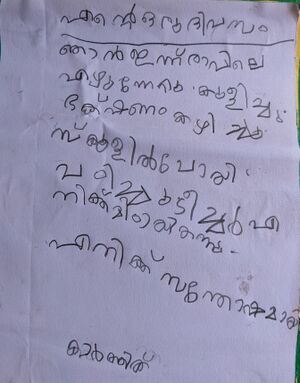 എന്റെ ഒരു ദിവസം
ഞാൻ ഇന്ന് രാവിലെ
എഴുന്നേറ്റു കുളിച്ചു
ഭക്ഷണം കഴിച്ചു
സ്കൂളിൽ പോയി
പഠിച്ചു ടീച്ചർ എ
നിക്ക്
എനിക്ക് സന്തോഷമായി
കാർത്തിക്